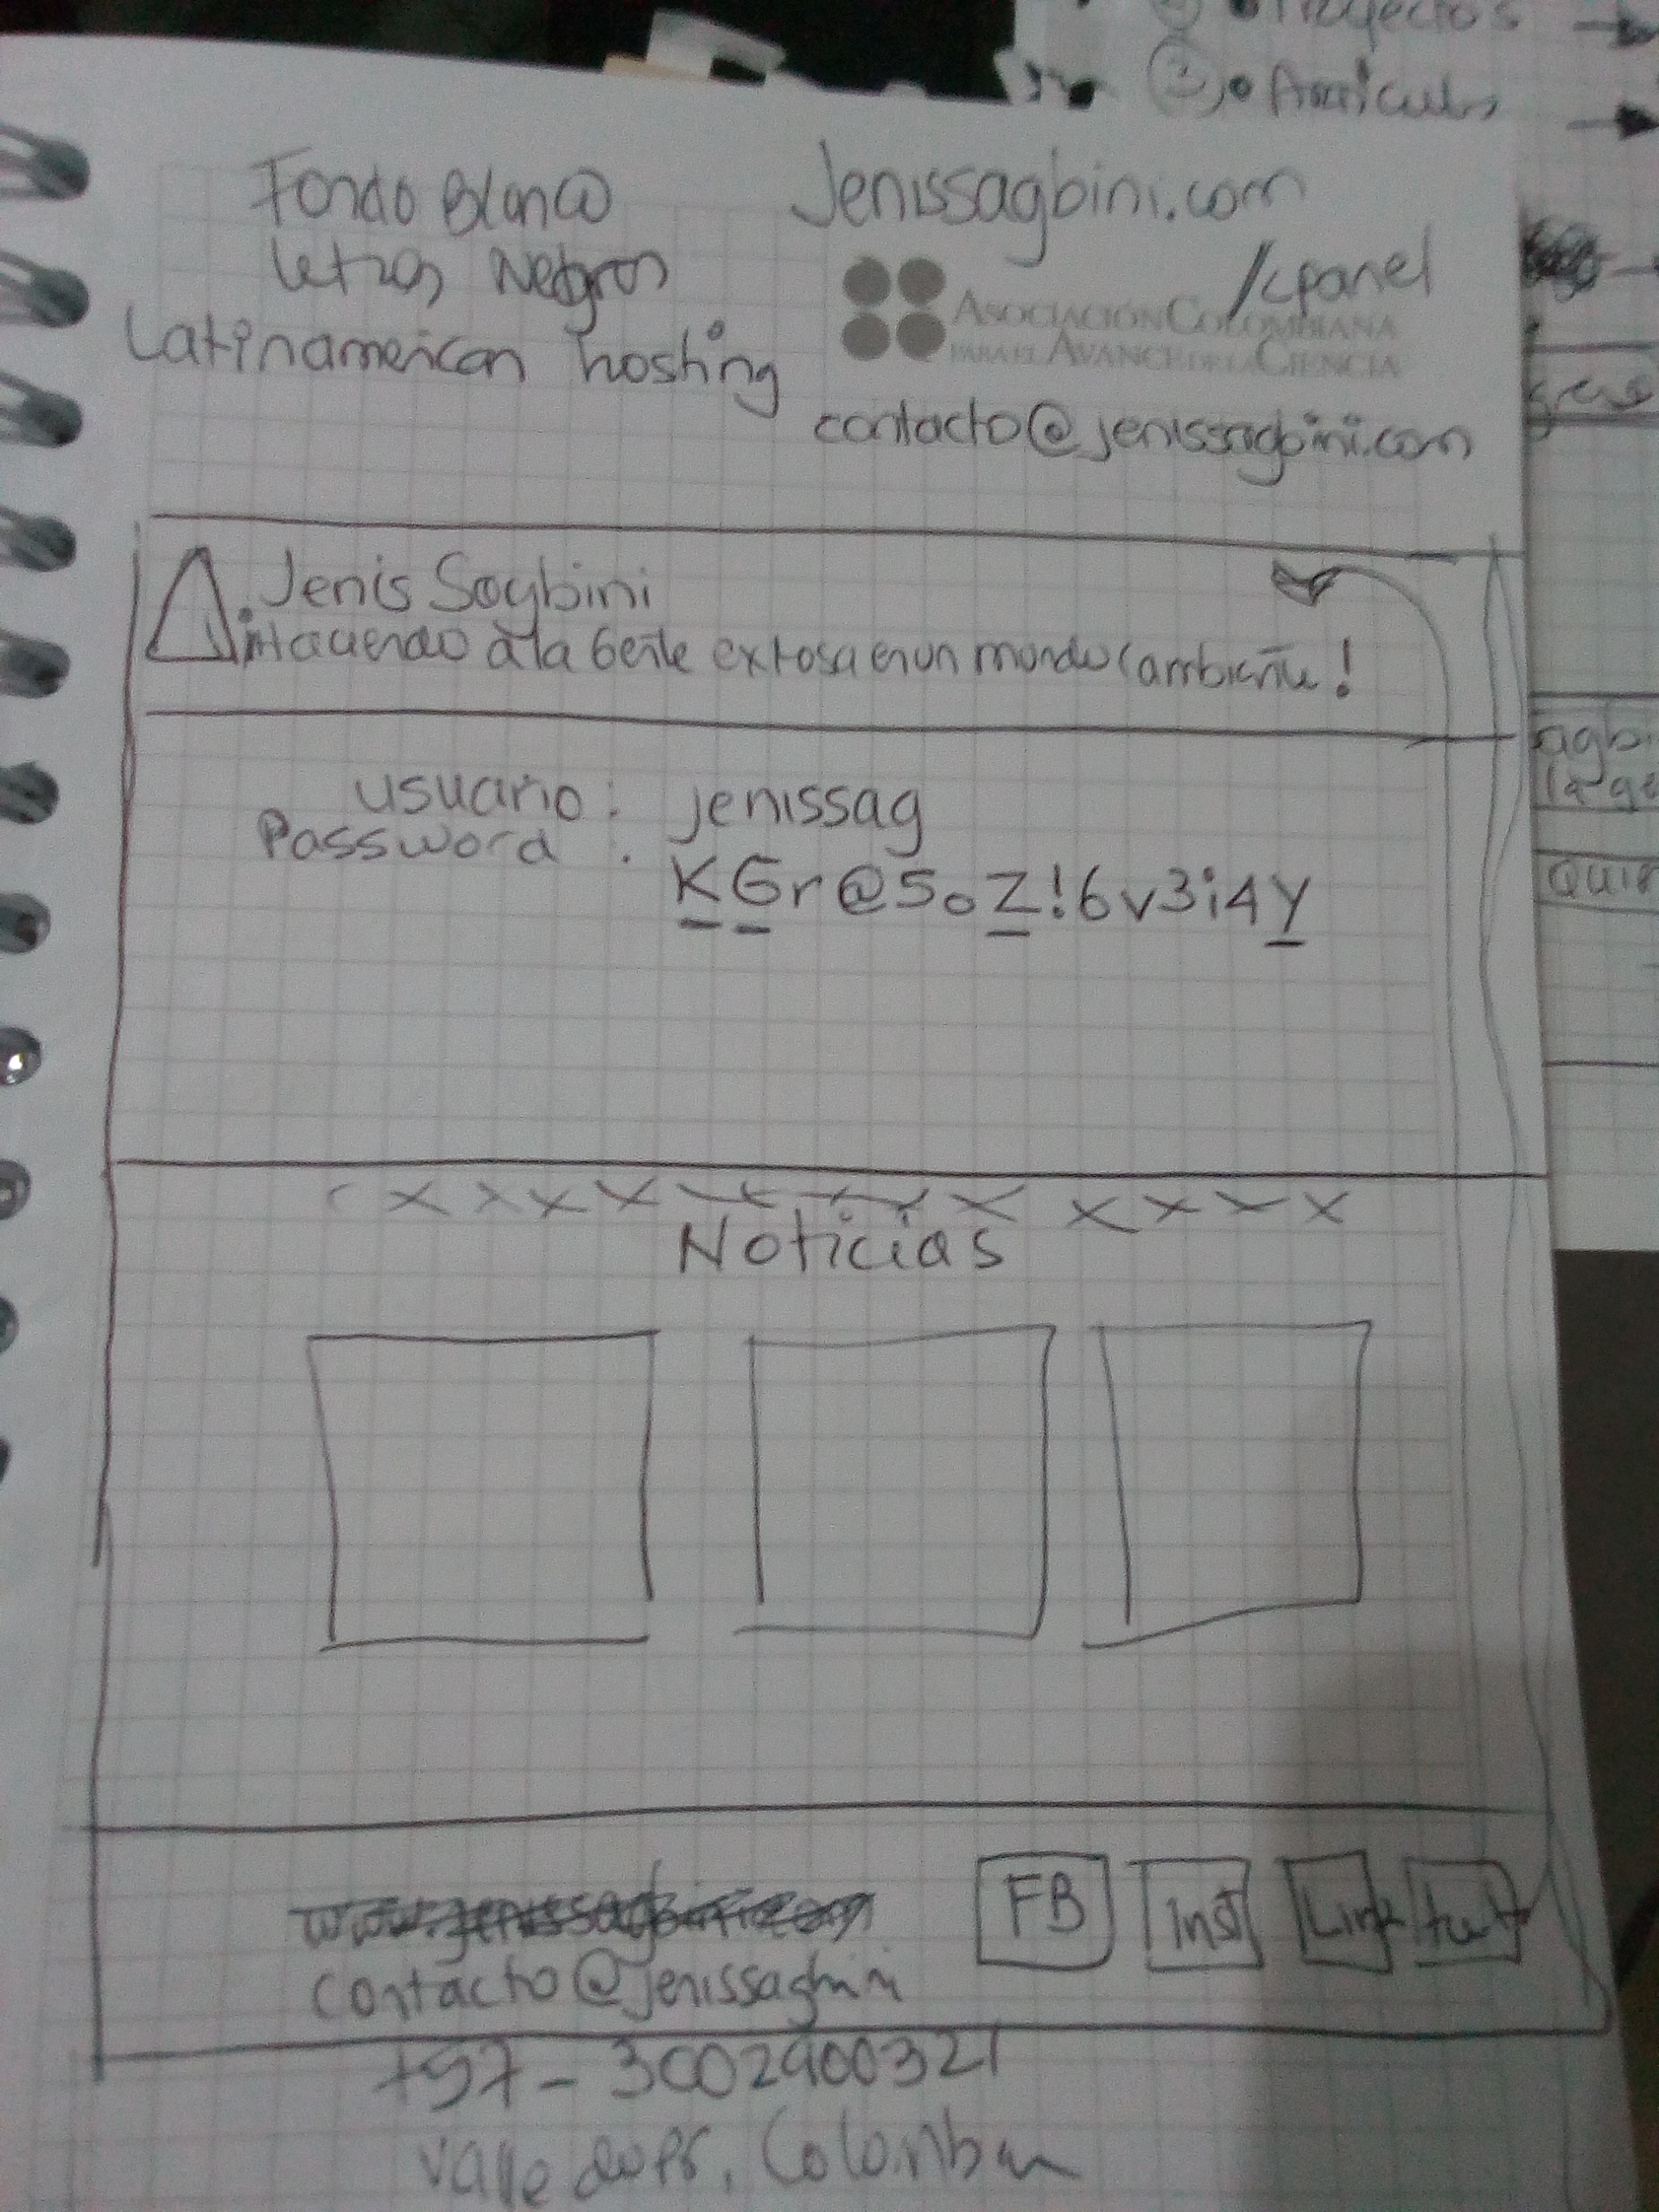 Proyectos
3 • Articulos
Fondo Blanco
letras Negros
Latinamerican hosting
Jenissagbini.com
/cpanel
ASOCIACIÓN COLOMBIANA
PARA EL AVANCE DE LA CIENCIA
contacto@jenissagbini.com
Jenis Sagbini
Haciendo a la Gente exitosa en un mundo cambiante!
usuario: jenissag
Password:
KGr@5oZ!6v3i4Y
agbi
la ge
Quie
x x x x x x x x x x x x
Noticias
FB
Inst
Link
twt
contacto@jenissagbini
+57-3002900321
Valledupar, Colombia